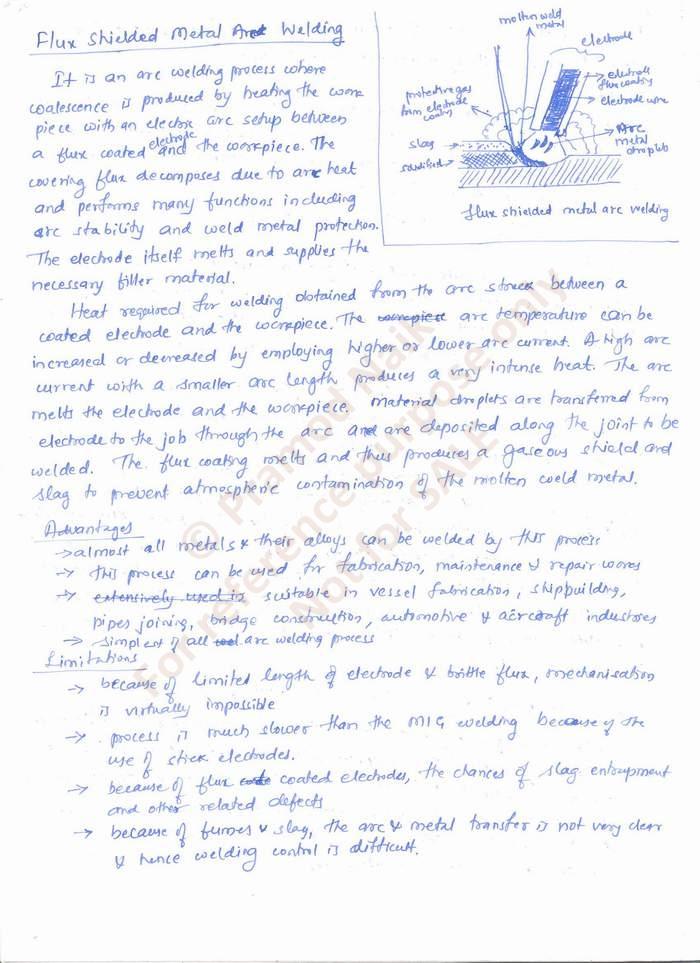 Flux Shielded Metal Arc Welding
It is an arc welding process where
coalescence is produced by heating the work
piece with an electric arc setup between
a flux coated electrode and the workpiece. The
covering flux decomposes due to arc heat
and performs many functions including
arc stability and weld metal protection.
The electrode itself melts and supplies the
necessary filler material.
molten weld
metal
electrode
protective gas
from electrode
coating
electrode
flux coating
electrode wire
Arc
metal
droplets
slag
solidified
flux shielded metal arc welding
Heat required for welding obtained from the arc struck between a
coated electrode and the workpiece. The workpiece arc temperature can be
increased or decreased by employing higher or lower arc current. A high arc
current with a smaller arc length produces a very intense heat. The arc
melts the electrode and the workpiece. Material droplets are transferred from
electrode to the job through the arc and are deposited along the joint to be
welded. The flux coating melts and thus produces a gaseous shield and
slag to prevent atmospheric contamination of the molten weld metal.
Advantages
→ almost all metals & their alloys can be welded by this process
→ this process can be used for fabrication, maintenance & repair works
→ extensively used in suitable in vessel fabrication, shipbuilding,
pipes joining, bridge construction, automotive & aircraft industries
→ simplest of all arc welding process
Limitations
→ because of limited length of electrode & brittle flux, mechanisation
is virtually impossible
→ process is much slower than the MIG welding because of the
use of stick electrodes.
→ because of flux coated electrodes, the chances of slag entrapment
and other related defects
→ because of fumes & slag, the arc & metal transfer is not very clear
& hence welding control is difficult.
© Pramod Naik
For reference purpose only
Not for SALE